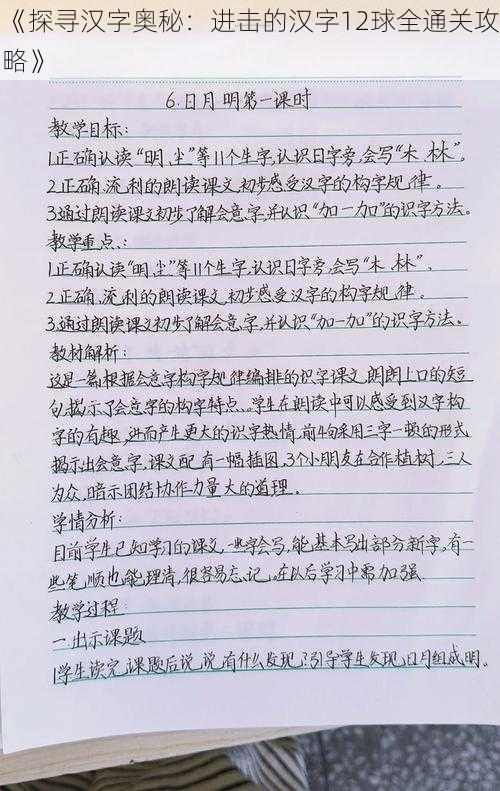 《探寻汉字奥秘：进击的汉字12球全通关攻
略》
6.日月明第一课时
教学目标：
1.正确认读“明、尘”等11个生字,认识日字旁,会写“木、林”。
2.正确、流利的朗读课文,初步感受汉字的构字规律。
3.通过朗读课文初步了解会意字,并认识“加一加”的识字方法。
教学重点：
1.正确认读“明、尘”等11个生字,认识日字旁,会写“木”、林”。
2.正确、流利的朗读课文,初步感受汉字的构字规律。
3.通过朗读课文初步了解会意字,并认识“加一加”的识字方法。
教材解析：
这是一篇根据会意字构字规律编排的识字课文,朗朗上口的短
句,揭示了会意字的构字特点。学生在朗读中可以感受到汉字构
字的有趣,进而产生更大的识字热情,前4句采用三字一顿的形式
揭示出会意字,课文配有一幅插图,3个小朋友在合作植树,三人
为众,暗示团结协作力量大的道理。
学情分析：
目前学生已知学习的课文,一些字会写,能基本写出部分新字,有一
些笔顺也能理清,很容易忘记,在以后学习中需加强.
教学过程
一.出示课题
1学生读完课题后说说,有什么发现?引导学生发现,日月组成明。